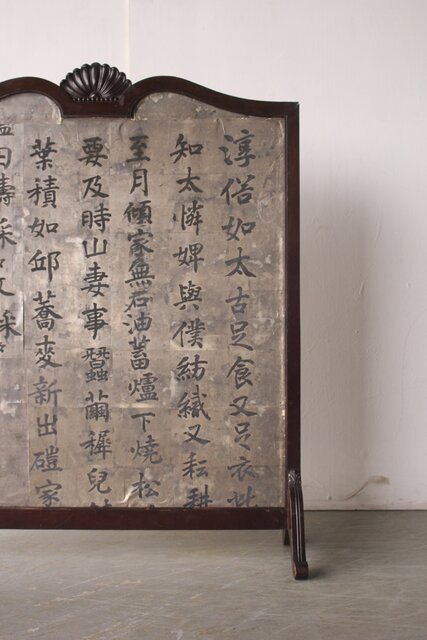 淳俗如太古足食又足衣
知太憐婢與僕紡織又耘耕
至月傾家無石油蓄爐下燒松
要及時山妻事蠶繭穉兒
葉積如邱蕎麥新出磑家